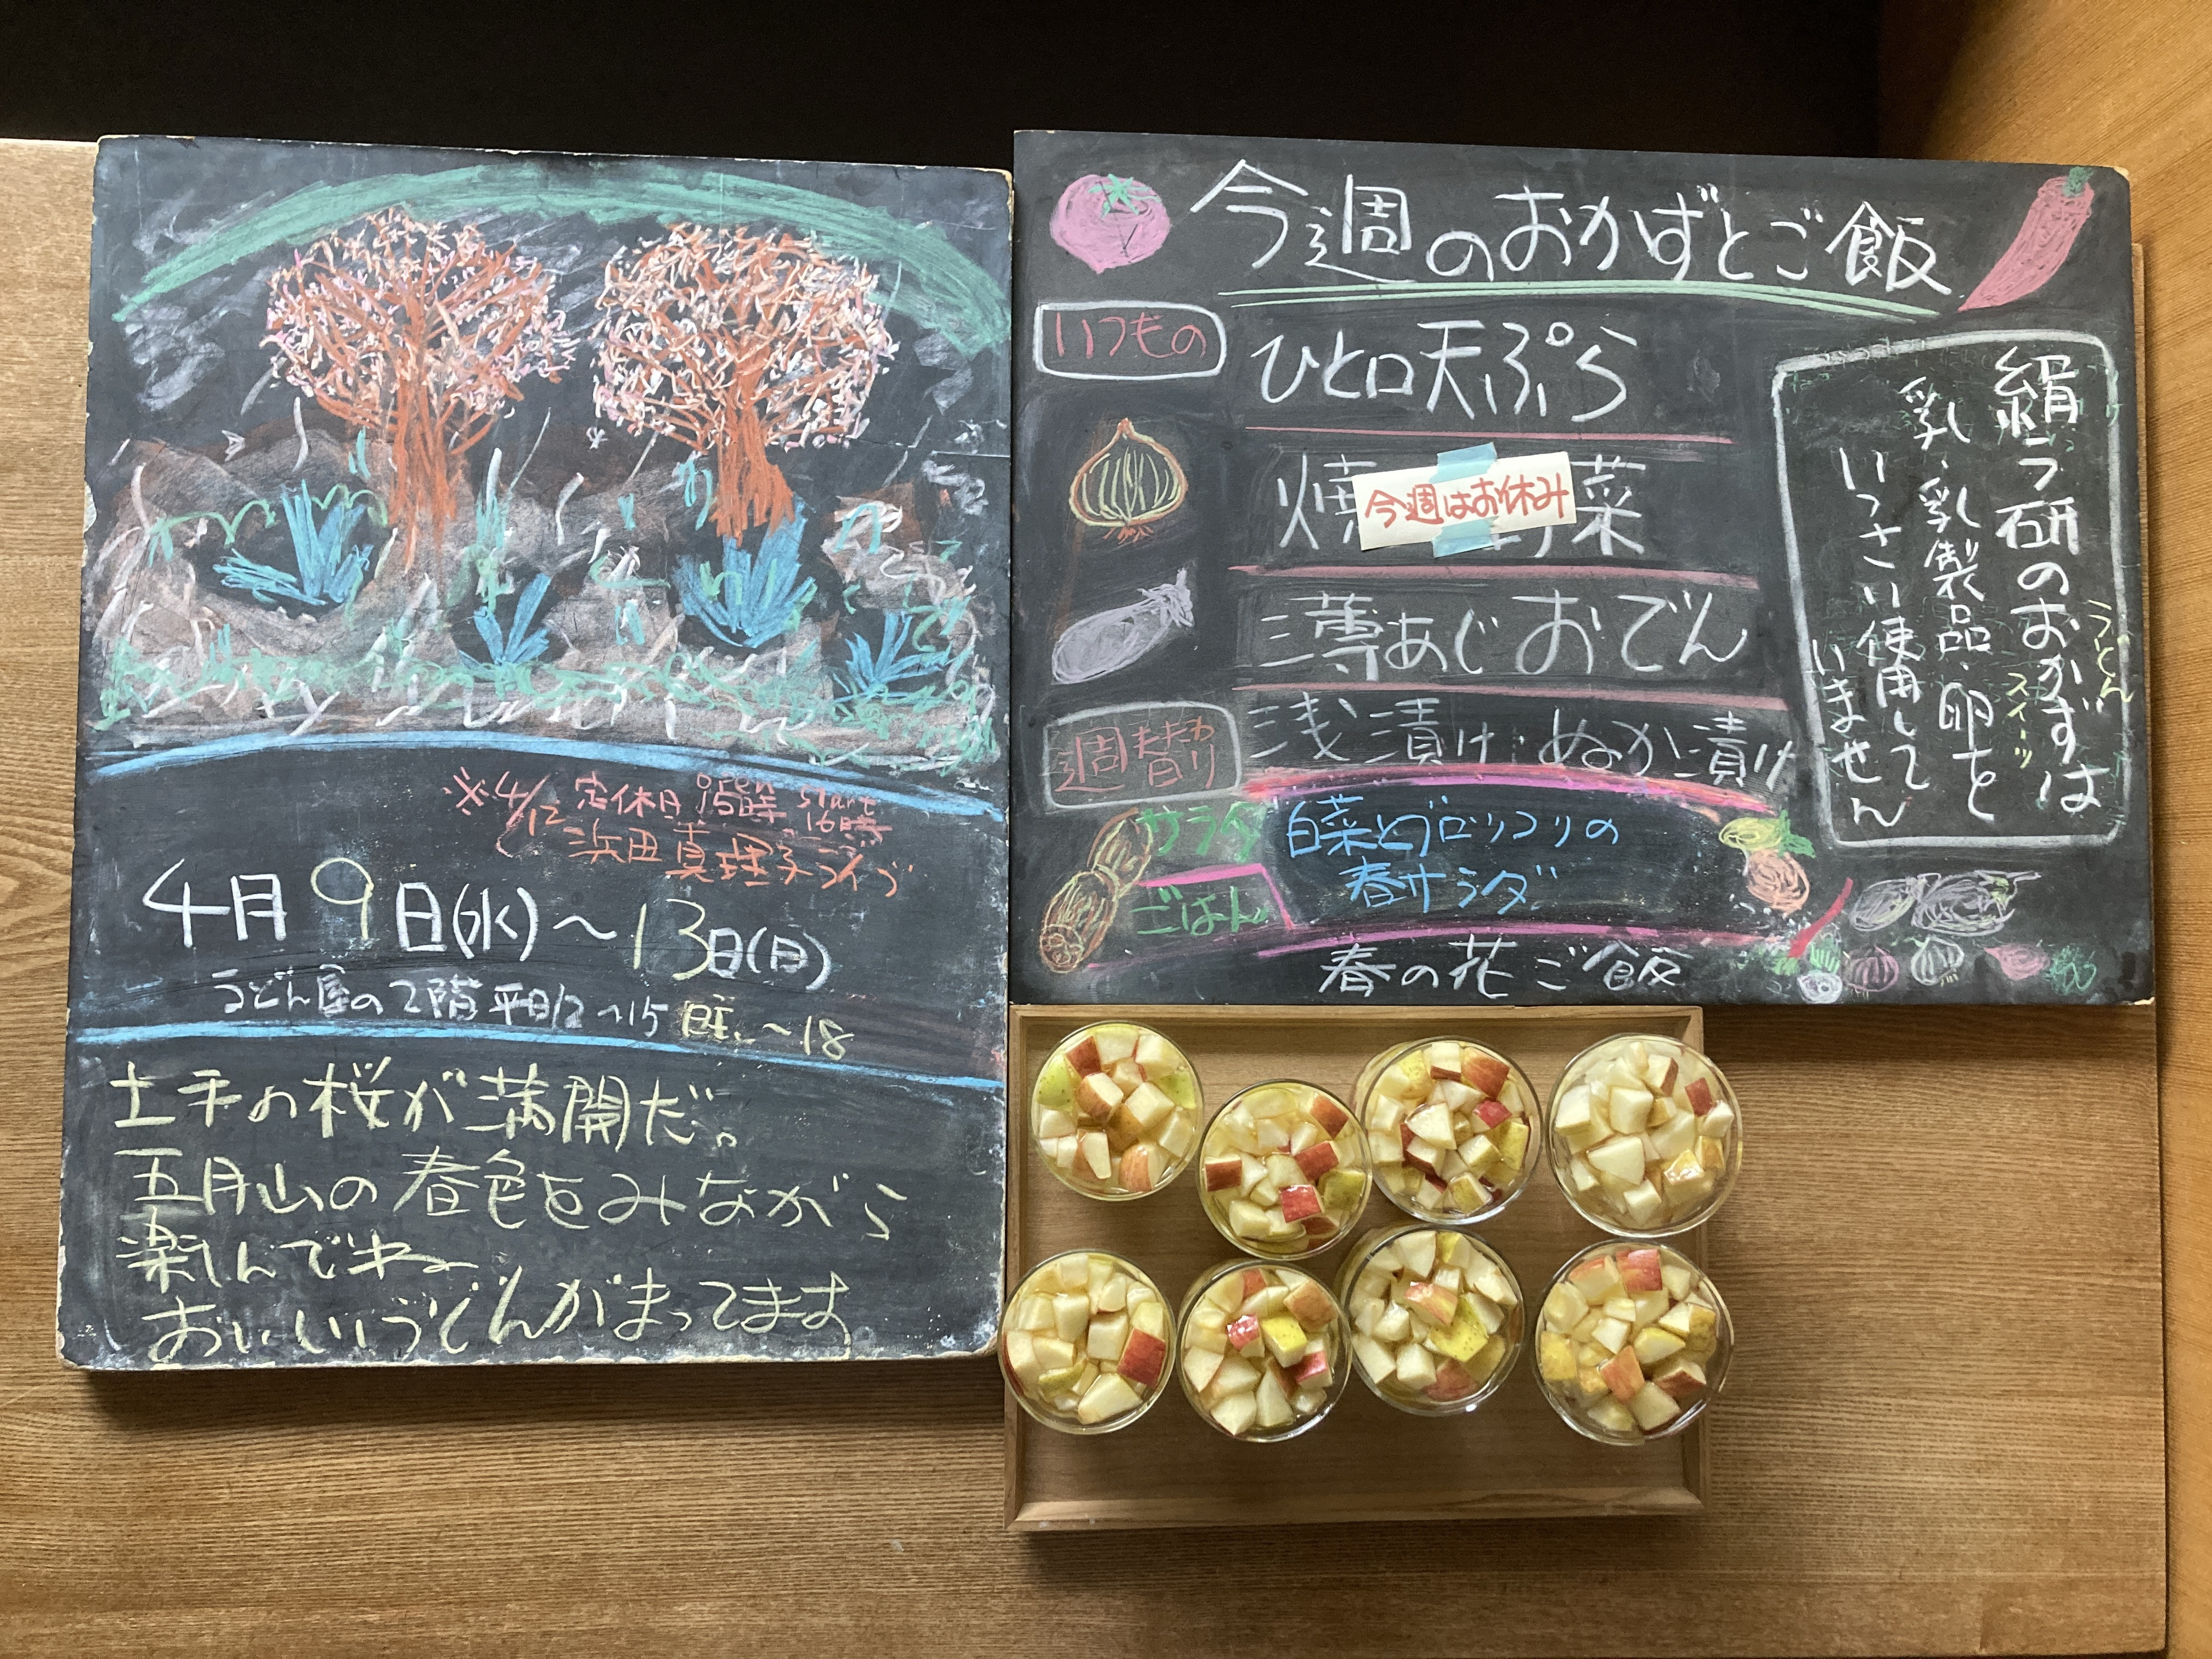 ※4/12 定休日 open 15時 start 16時
浜田真理子ライブ
4月9日(水)～13日(日)
うどん屋の2階 平日12～15 ～18
土手の桜が満開だ。
五月山の春色をみながら
楽しんでネー
おいしいうどんがまってます
今週のおかずとご飯
いつもの
ひと口天ぷら
焼 菜
今週はお休み
三尊あじおでん
浅漬け・ぬか漬け
週替り
サラダ
白菜とブロッコリの
春サラダ
ごはん
春の花ご飯
絹ラ研のおかずは
うどん
スイーツ
乳、乳製品・卵を
いっさい使用して
いません